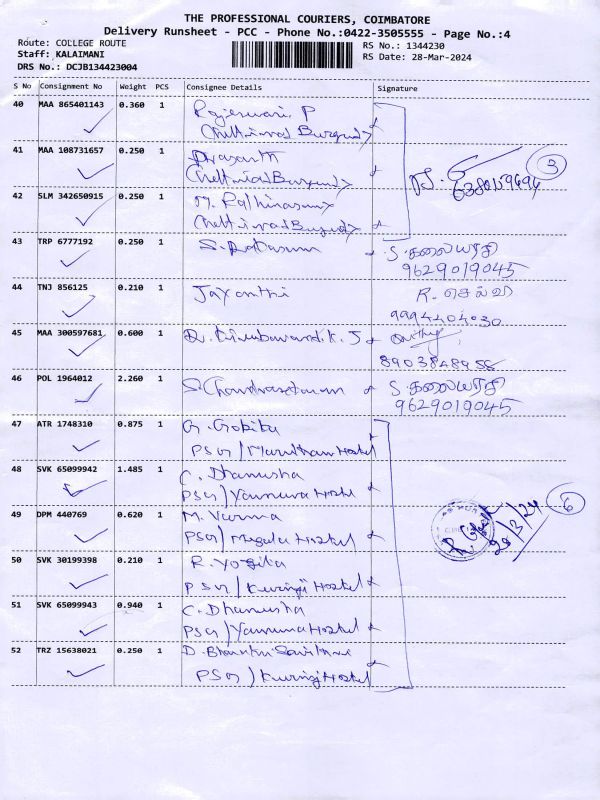 THE PROFESSIONAL COURIERS, COIMBATORE
Delivery Runsheet - PCC - Phone No.:0422-3505555 - Page No.:4
Route: COLLEGE ROUTE
RS No.: 1344230
Staff: KALAIMANI
RS Date: 28-Mar-2024
DRS No.: DCJB134423004
S No Consignment No Weight PCS Consignee Details Signature
40 MAA 865401143 0.360 1 Rajeswari. P
41 MAA 108731657 0.250 1 Prasanth
3
6380159694
42 SLM 342650915 0.250 1 M. Rathinasamy
43 TRP 6777192 0.250 1 S.
S கலையரசி
9629019045
44 TNJ 856125 0.210 1 Jayanthi R. செல்வி
9994404030
45 MAA 300597681 0.600 1
46 POL 1964012 2.260 1 S. Chandrasekaran S கலையரசி
9629019045
47 ATR 1748310 0.875 1 G. Gokila
PSG / Marutham Hostel
48 SVK 65099942 1.485 1 C. Dhanusha
PSG / Yamuna Hostel
49 DPM 440769 0.620 1 M. Varma
PSG / Hostel
6
28/3/24
50 SVK 30199398 0.210 1 R. Yogita
PSG / Kurinji Hostel
51 SVK 65099943 0.940 1 C. Dhanusha
PSG / Yamuna Hostel
52 TRZ 15638021 0.250 1 D.
PSG / Kurinji Hostel